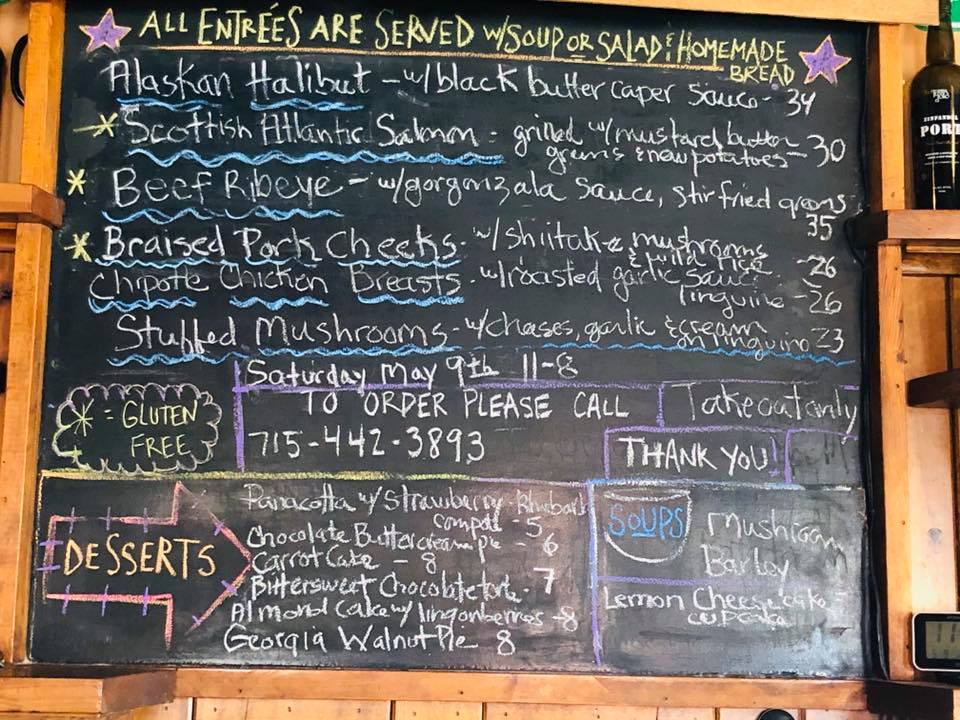 ALL ENTRÉES ARE SERVED W/SOUP OR SALAD & HOMEMADE
BREAD
Alaskan Halibut - w/black butter caper sauce - 34
* Scottish Atlantic Salmon - grilled w/mustard butter
greens & new potatoes - 30
* Beef Ribeye - w/gorgonzala sauce, stir fried greens
35
* Braised Pork Cheeks - w/shiitake mushrooms
& wild rice - 26
Chipotle Chicken Breasts - w/roasted garlic sauce
linguine - 26
Stuffed Mushrooms - w/cheeses, garlic & cream
on linguine 23
Saturday May 9th 11-8
* = GLUTEN
FREE
TO ORDER PLEASE CALL
715-442-3893
Takeout only
THANK YOU!
DESSERTS
Panacotta w/Strawberry-Rhubarb
compote - 5
Chocolate Buttercream Pie - 6
Carrot Cake - 8
Bittersweet Chocolate torte - 7
Almond Cake w/lingonberries - 8
Georgia Walnut Pie 8
SOUPS
Mushroom
Barley
Lemon Cheesecake
cupcake
PORT